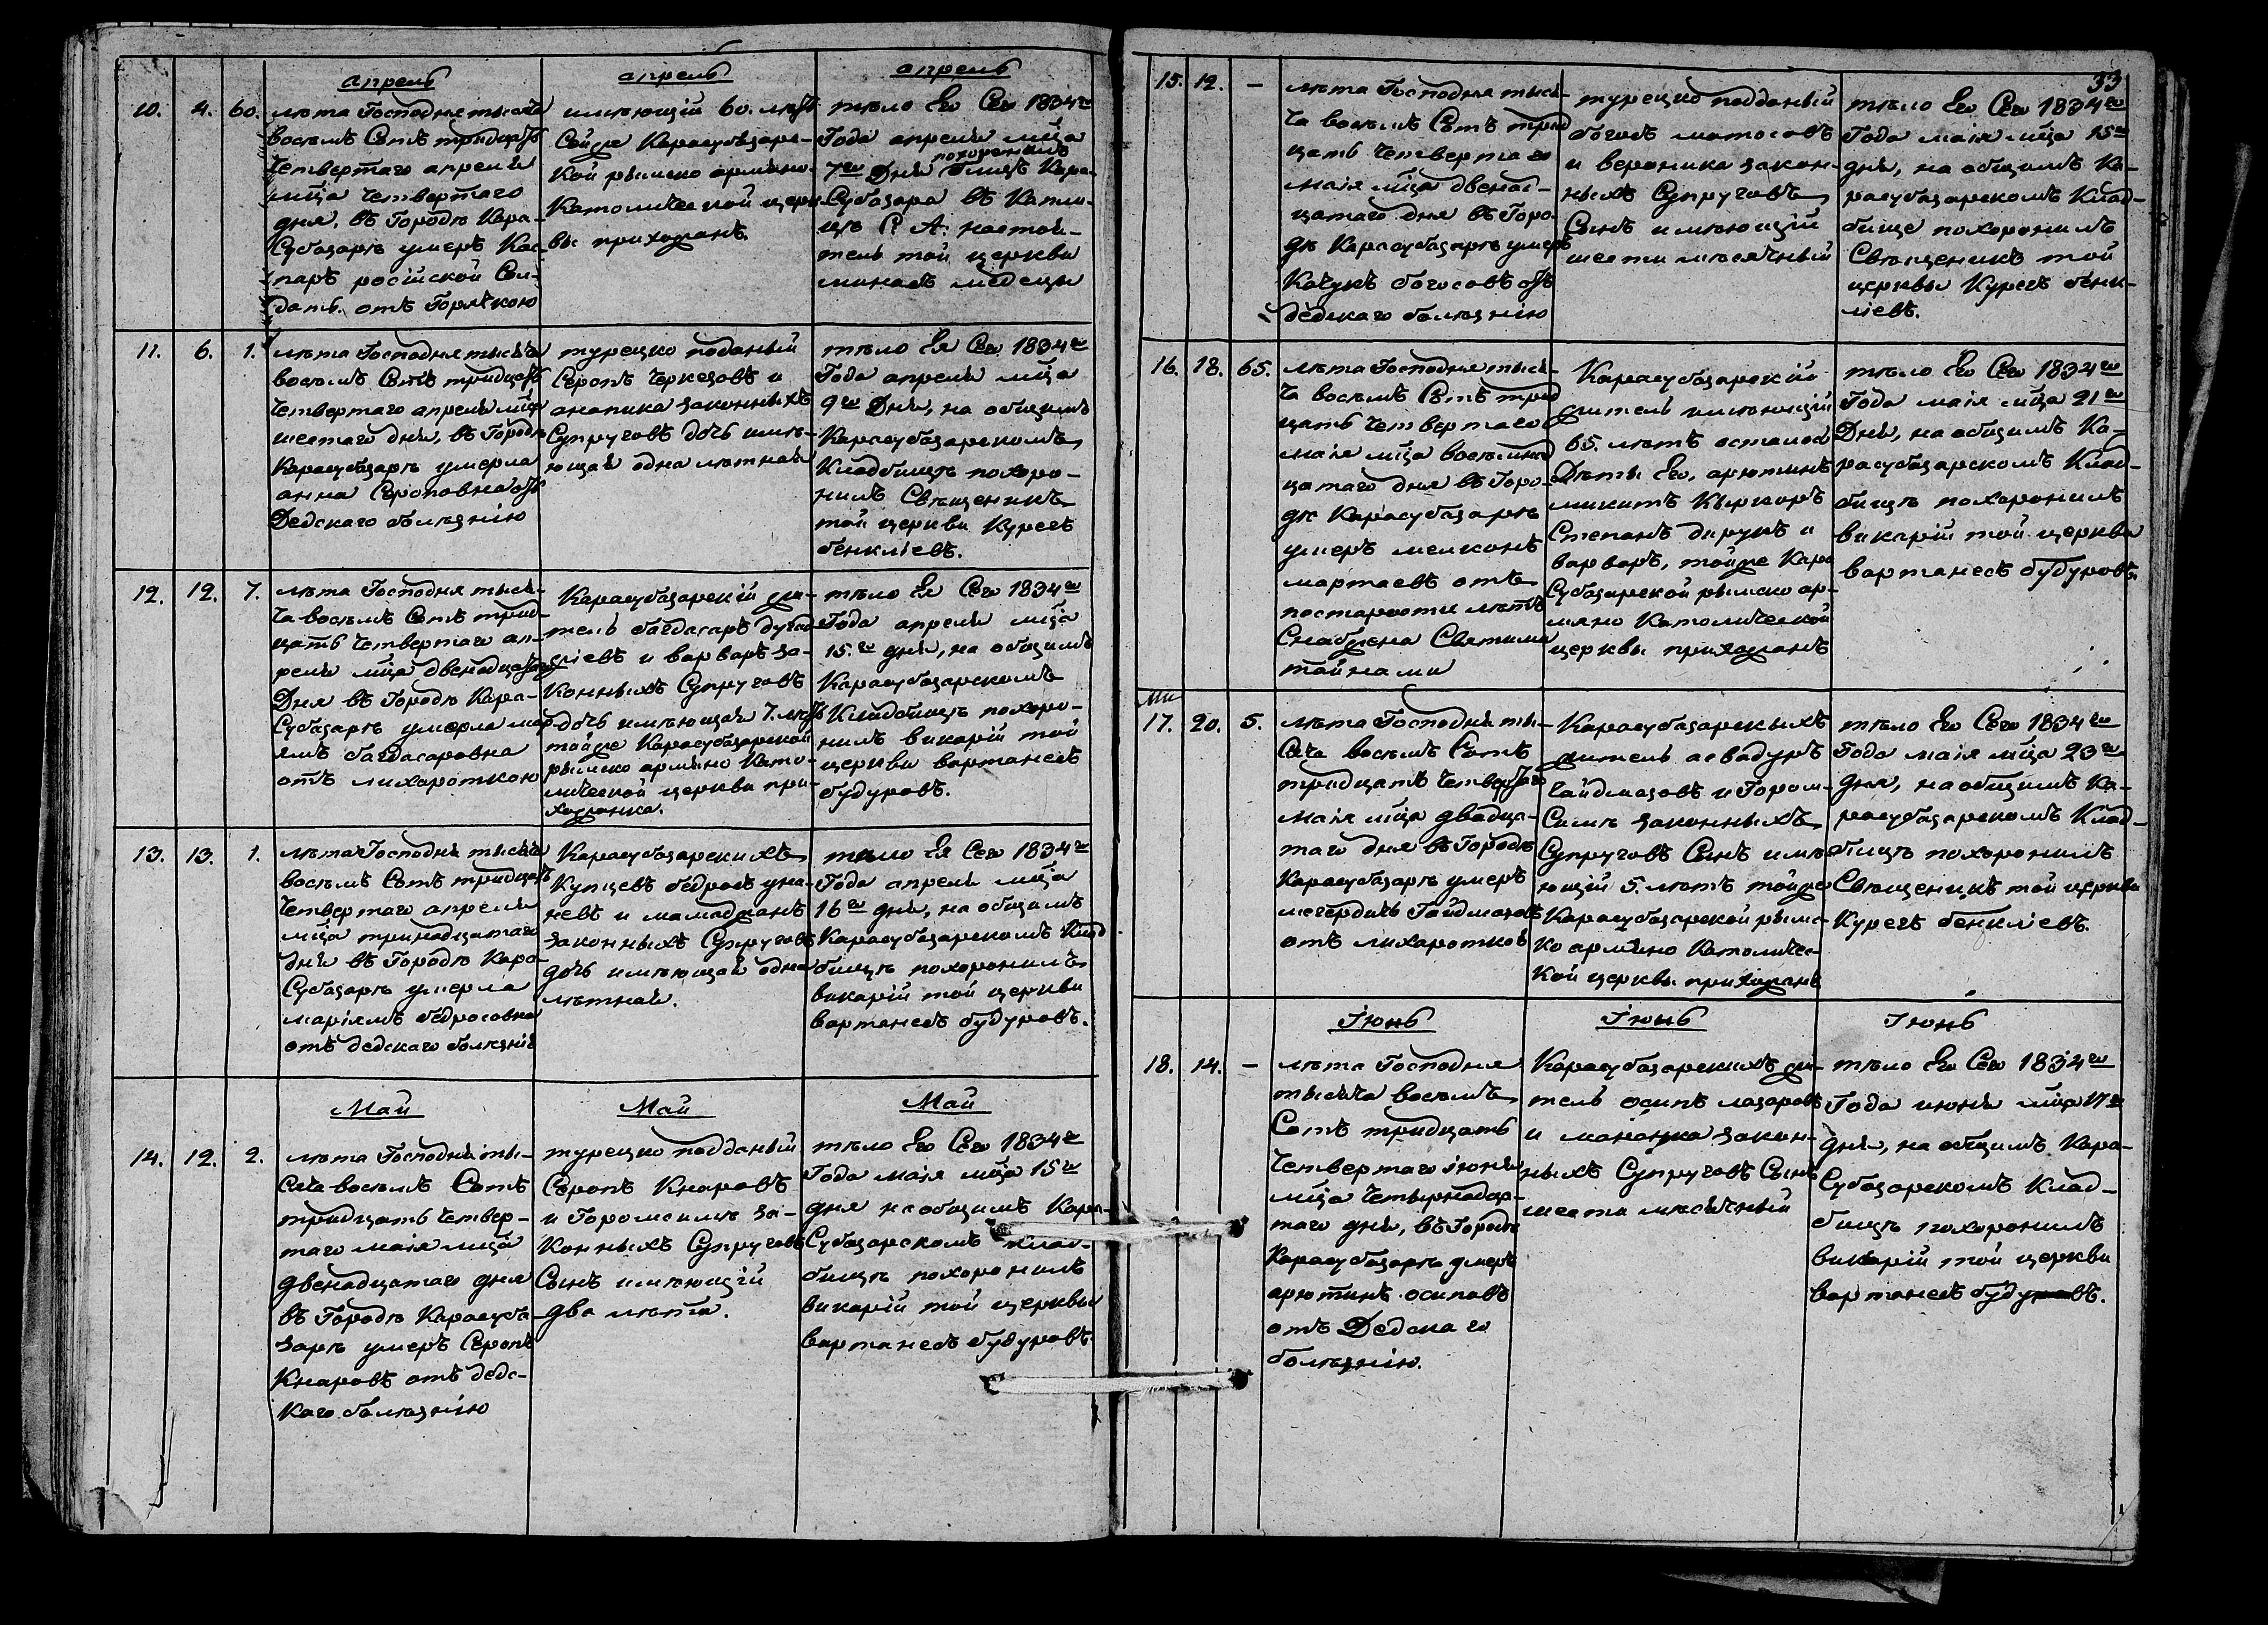 апрель
апрель
апрель
10. 4. 60.
лѣта Господня тысяча
восѣмъ Сотъ тридцать
четвертаго апреля
мѣца четвертаго
дня, въ Городѣ Кара-
Субазарѣ умеръ Кас
паръ російской Сол-
датъ. отъ Горячкою
имѣющій 60. лѣтъ
Сейже Карасубазарс-
кой римско армяно-
Католической церк-
вы прихожанъ.
тѣло Его Сего 1834го
Года апреля мѣца
7го Дня похороненъ близъ Кара-
Субазара въ
настоя-
тель той церкви
минасъ медецы
11. 6. 1.
лѣта Господня тысяча
восѣмъ Сотъ тридцать
четвертаго апреля мѣца
шестаго дня, въ Городѣ
Карасубазарѣ умерла
анна Сероповна отъ
Дедскаго болѣзнію
турецко поданый
Серопъ Черкезовъ и
анапика законныхъ
Супруговъ дочь имѣ-
ющая одна лѣтная
тѣло Ея Сего 1834го
Года апреля мѣца
9го Дня, на общимъ
Карасубазарскомъ
Кладбищѣ похоро-
нилъ Священникъ
той церкви Курегъ
бенкліевъ.
12. 12. 7.
лѣта Господня тыся-
ча восѣмъ Сотъ трид-
цать четвертаго ап-
реля мѣца двенадцатаго
Дня въ Городѣ Кара-
Субазарѣ умерла мар-
ямъ багдасаровна
отъ лихораткою
Карасубазарскій жи-
тель багдасаръ
и варваръ за-
конныхъ Супруговъ
дочь имѣющая 7. лѣтъ
тойже Карасубазарской
римско армяно Като-
лической церкви при-
хожанка.
тѣло Ея Сего 1834го
Года апреля мѣца
15.го дня, на общимъ
Карасубазарскомъ
Кладбищѣ похоро-
нилъ викарій той
церкви вартанесъ
будуровъ.
13. 13. 1.
лѣта Господня тысяча
восѣмъ Сотъ тридцать
четвертаго апреля
мѣца тринадцатаго
дня въ Городѣ Кара-
Субазарѣ умерла
маріямъ бедросовна
отъ дедскаго болѣзнію
Карасубазарскихъ
Купцевъ бедросъ уна-
невъ и мамаджанъ
законныхъ Супруговъ
дочь имѣющая одна
лѣтная.
тѣло Ея Сего 1834го
Года апреля мѣца
16го дня, на общимъ
Карасубазарскомъ Клад
бищѣ похоронилъ
викарій той церкви
вартанесъ будуровъ.
Май
Май
Май
14. 12. 2.
лѣта Господня ты-
сяча восѣмъ Сотъ
тридцать четвер-
таго маія мѣца
двенадцатаго дня
въ Городѣ Карасуба-
зарѣ умеръ Серопъ
Кнаровъ отъ дедс-
каго болѣзнію
турецко подданый
Серопъ Кнаровъ
и Горомсимъ за-
конныхъ Супруговъ
Сынъ имѣющій
два лѣта.
тѣло Его Сего 1834го
Года маія мѣца 15го
дня на общимъ Кара-
Субазарскомъ Клад-
бищѣ похоронилъ
викарій той церквы
вартанесъ будуровъ
33
15. 12. -
лѣта Господня тыся-
ча восѣмъ Сотъ трид
цать четвертаго
маія мѣца двенад-
цатаго дня въ Горо-
дѣ Карасубазарѣ умеръ
Качукъ богосовъ отъ
дедскаго болѣзнію
турецко подданый
богосъ матосовъ
и вероника закон-
ныхъ Супруговъ
Сынъ имѣющій
шести мѣсячный
тѣло Его Сего 1834го
Года маія мѣца 15го
дня, на общимъ Ка-
расубазарскомъ Клад-
бище похоронилъ
Священикъ той
церквы Курегъ бенк-
ліевъ.
16. 18. 65.
лѣта Господня тыся-
ча восѣмъ Сотъ трид
цать четвертаго
маія мѣца восѣмнад
цатаго дня въ Горо-
дѣ Карасубазарѣ
умеръ мелконъ
мартаевъ отъ
постарости лѣтъ
Снабжена Святими
тайнами
Карасубазарскій
житель имѣющій
65. лѣтъ остался
Дѣты Его, арютинъ
микитъ Киркоръ
Степанъ дирукъ и
варваръ, тойже Кара
Субазарской римско ар-
мяно Католической
церквы прихожанъ
тѣло Его Сего 1834го
Года маія мѣца 21го
Дня, на общимъ Ка-
расубазарскомъ Клад-
бищѣ похоронилъ
викарій той церква
вартанесъ будуровъ.
17. 20. 5.
лѣта Господня ты-
сяча восѣмъ Сотъ
тридцать четвертаго
маія мѣца двадца-
таго дня въ Городѣ
Карасубазарѣ умеръ
мегердичь Гайдмазовъ
отъ лихароткой
Карасубазарскихъ
житель асвадуръ
Гайдмазовъ и Гором-
Симъ законныхъ
Супруговъ Сынъ имѣ-
ющій 5. лѣтъ тойже
Карасубазарской римс-
ко армяно Католичес-
кой церквы прихожанъ
тѣло Его Сего 1834го
Года маія мѣца 23го
дня, на общимъ Ка-
расубазарскомъ Клад-
бищѣ похоронилъ
Священикъ той церкви
Курегъ бенкліевъ.
Іюнь
Іюнь
Іюнь
18. 14. -
лѣта Господня
тысяча восѣмъ
Сотъ тридцать
четвертаго іюня
мѣца четырнадца-
таго дня, въ Городѣ
Карасубазарѣ умеръ
арютинъ осиповъ
отъ Дедскаго
болѣзнію.
Карасубазарскихъ жи-
тель осипъ лазаровъ
и закон-
ныхъ Супруговъ Сынъ
шести мѣсячный
тѣло Его Сего 1834го
Года июня мѣца 17го
дня, на общимъ Кара-
Субазарскомъ Клад-
бищѣ похоронилъ
викарій той церкви
вартанесъ будуровъ.